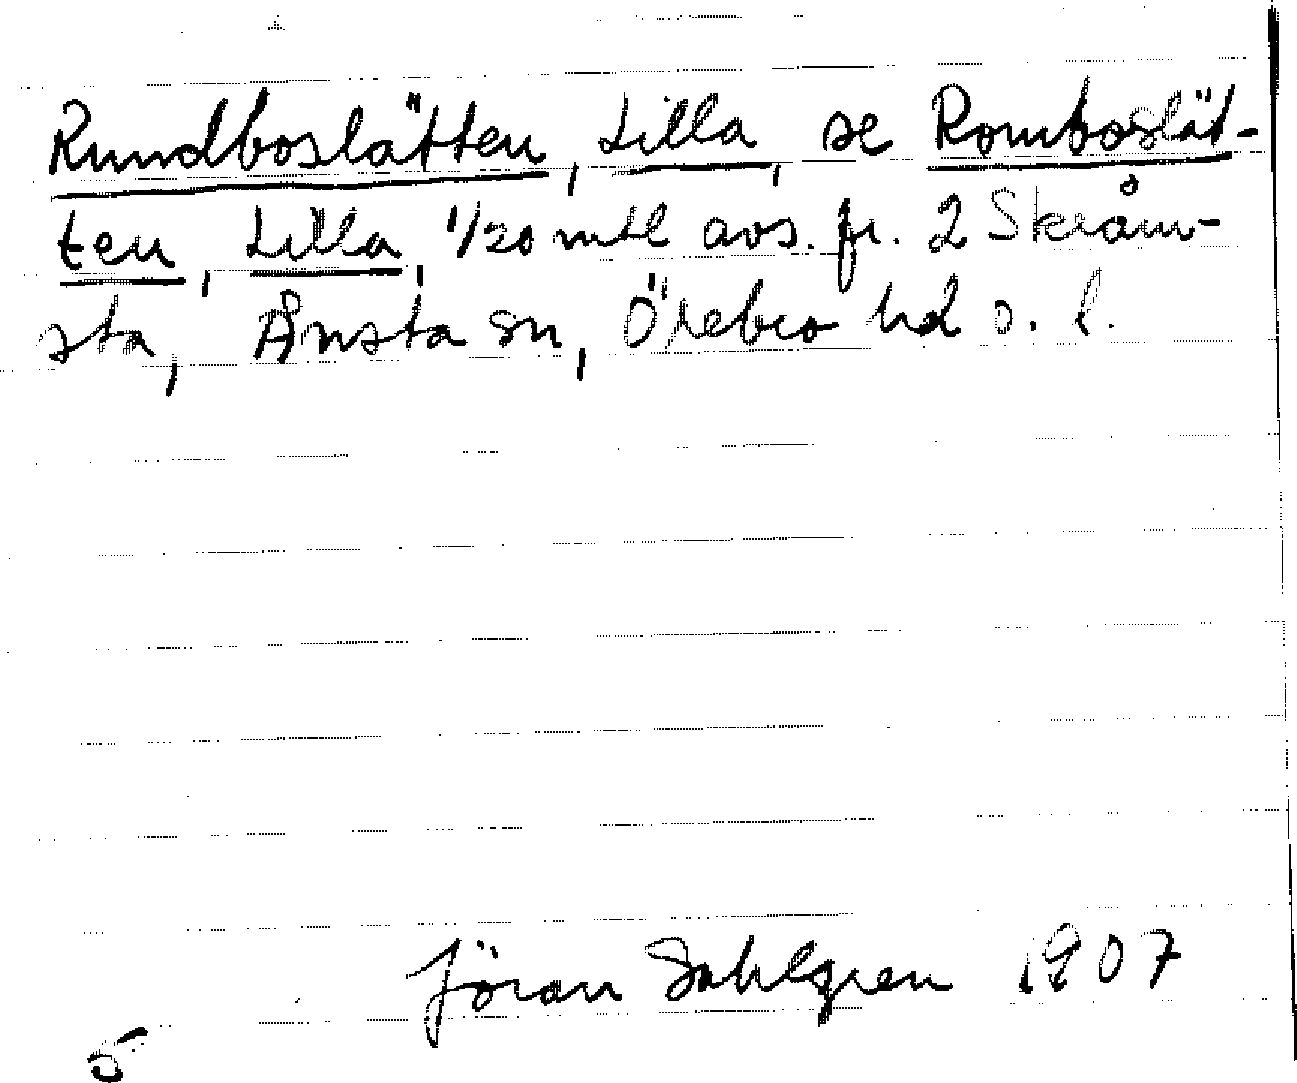 Rundboslätten, Lilla, se Romboslät-
ten, Lilla, 1/20 mtl avs. fr. 2 Skråm-
sta, Ånsta sn, Örebro hd o. l.
Jöran Sahlgren 1907
5